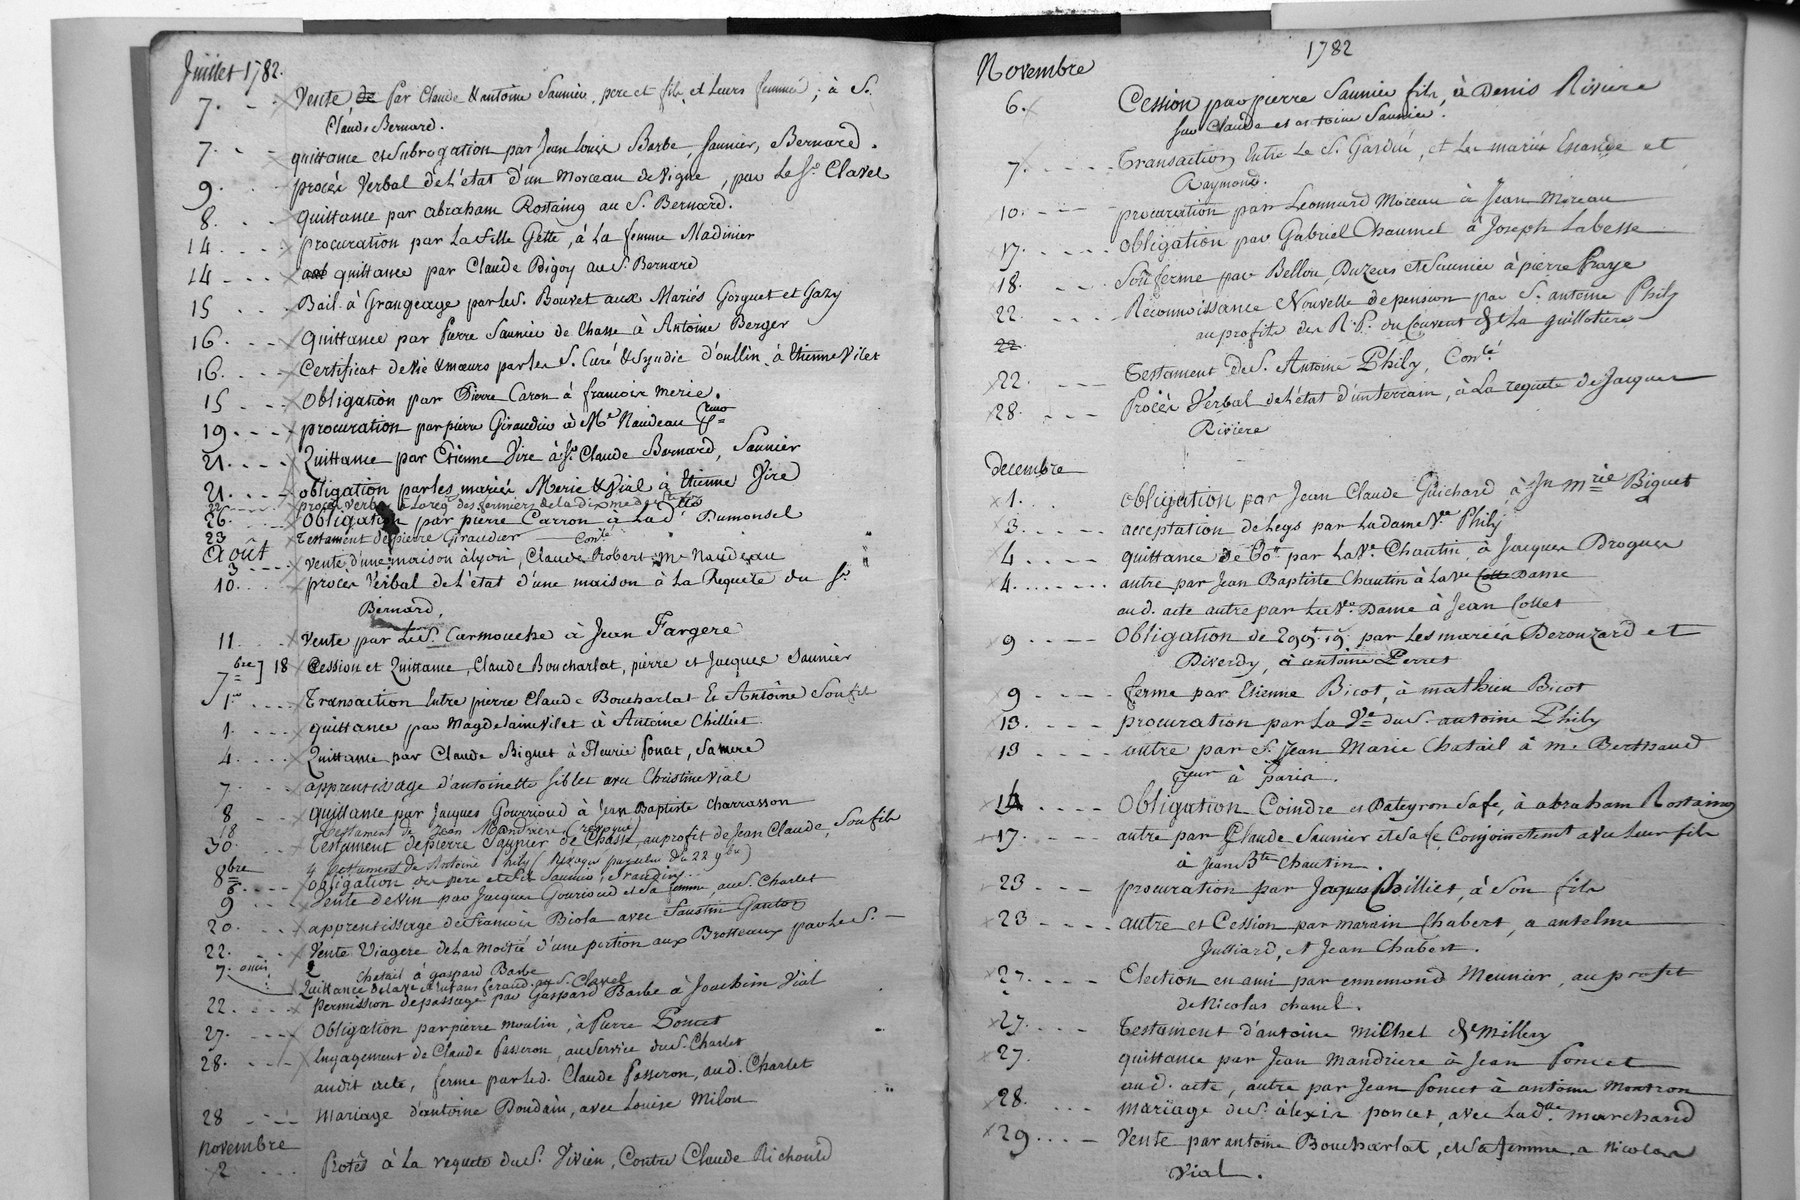 Juillet 1782.
7. Vente de par Claude & antoine Saunier, pere et fils, et Leurs femmes, à S.
Claude Bernard.
7. quittance et subrogation par Jean Louis Barbe, Saunier, Bernard.
9. procès Verbal de l'état d'un Morceau de Vigne, par Le Sr. Clavel
8. quittance par abraham Rostaing au S. Bernard.
14. procuration par La fille Gette, à La femme Madinier
14. quittance par Claude Bigoy au S. Bernard
15. Bail à Grangeage par le S. Bouvet aux Mariés Gorguet et Gazy
16. Quittance par Pierre Saunier de Chasse à Antoine Berger
16. Certificat de vie & mœurs par les S. Curé & Syndic d'oullin, à Etienne Vilet
15. Obligation par Pierre Caron à francois merie.
19. procuration par pierre Giraudier à Me Naudeau
21. Quittance par Etienne Vire à Sr Claude Bernard, Saunier
21. obligation par les mariés Merie & Vial à Etienne Vire
22. procès verbal à la req. des fermiers de la dixme de
26. Obligation par pierre Carron à La dlle Dumonsel
23 Testament de pierre Giraudier Conté
Août
3. vente d'une maison à lyon, Claude Robert Me Naudeau
10. procès Verbal de l'état d'une maison à La Requête du Sr.
Bernard,
11. Vente par Le S. Carmouche à Jean Fargere
7bre 18 Cession et Quittance, Claude Boucharlat, pierre et Jacques Saunier
1er Transaction Entre pierre Claude Boucharlat & Antoine Son fils
1. quittance par Magdelaine Vilet à Antoine Chilliet
4. Quittance par Claude Biguet à Fleurie Poncet, Sa mere
7. apprentissage d'antoinette Siblet avec Christine Vial
8 quittance par Jacques Gourrioud à Jean Baptiste Charrasson
18 Testament de Jean Mandriere (revoqué)
30. Testament de pierre Saunier de Chasse, au profit de Jean Claude, Son fils
8bre 4 Testament de Antoine Phily (Revoqué par celui du 22 9bre)
8. obligation des pere et fils Saunier, Giraudier
9. Vente de Vin par Jacques Gourioud et Sa femme, au S. Charlet
20. apprentissage de francois Biola avec Faustin Gantot
22. Vente Viagere de La Moitié d'une portion aux Brotteaux par Le S.
Chatail à gaspard Barbe
7. omis Quittance de la Ve et Enfans Feraud au S. Clavel
22. Permission de passage par Gaspard Barbe à Joachim Vial
27. Obligation par pierre moulin, à Pierre Poncet
28. Engagement de Claude Passeron, au Service du S. Charlet
audit acte, ferme par led. Claude Passeron, aud. Charlet
28 Mariage d'antoine Boudain, avec Louise Milon
Novembre
2 Protêt à La requete du S. Vivien, Contre Claude Richould
1782
Novembre
6. Cession par pierre Saunier fils, à Denis Riviere
sur Claude et antoine Saunier.
7. Transaction Entre Le S. Gardué, et Les mariés Enande et
Raymond.
10. procuration par Leonnard Moreau à Jean Moreau
17. Obligation par Gabriel Chaumet à Joseph Labesse
18. Sous ferme par Bellon, Duzeas et Saunier à pierre fraye
22. Reconnoissance Nouvelle de pension par S. antoine Phily
au profit des R.P. du Couvent de La Guillotiere
22.
22. Testament du S. Antoine Phily, Conté
28. Procès Verbal de L'état d'un terrain, à La requete de Jacques
Riviere
decembre
1. Obligation par Jean Claude Guichard à Jn mrie Biguet
3. acceptation de Legs par La dame Ve Phily
4. quittance de 60tt par La Ve Chautin à Jacques Brogues
4. autre par Jean Baptiste Chautin à La Ve Collet Dame
aud. acte autre par La Ve Dame à Jean Collet
9 Obligation de 299tt 19s par Les mariés Derouzard et
Diverdy, à antoine Perret
9 ferme par Etienne Bicot, à mathieu Bicot
13. procuration par La Ve du S. antoine Phily
13 autre par S. Jean Marie Chatail à me Berthaud
à Paris.
14 Obligation Coindre et Dateyron Sa fe, à abraham Rostaing
17. autre par Claude Saunier et Sa fe Conjointement avec Leur fils
à Jean Bte Chautin.
23 procuration par Jacques Chilliet, à Son fils
23 autre et Cession par marain Chabert, a antelme
Julliard, et Jean Chabert.
27. Election en ami par ennemond Meunier, au profit
de Nicolas chanel.
27. Testament d'antoine Michel de Millery
27. quittance par Jean Mandriere à Jean Poncet
aud. acte, autre par Jean Poncet à antoine Montron
28. Mariage du S. alexis poncet, avec La dlle marchand
29. Vente par antoine Boucharlat, et Sa femme a Nicolas
Vial.